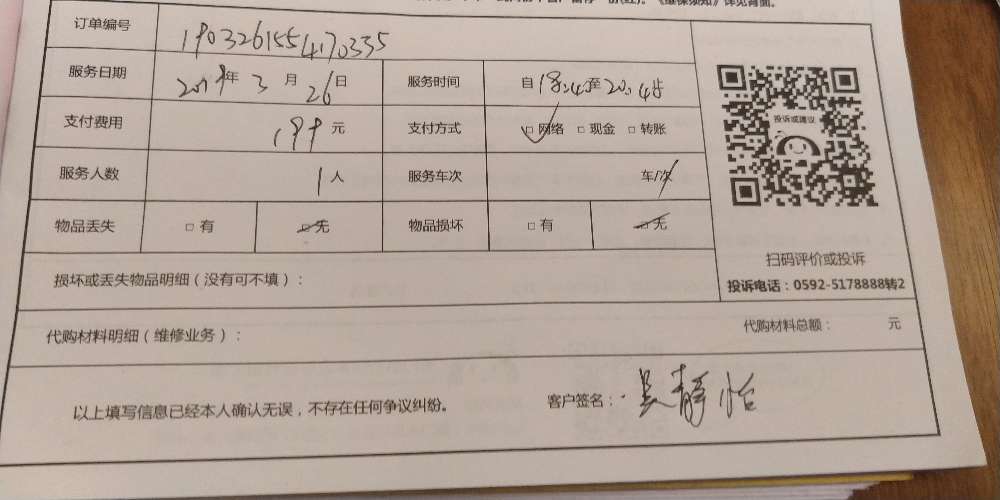 《维保须知》详见背面。
订单编号 1903261554170335
服务日期 2019年 3 月 26日 服务时间 自18:4 至20:4
支付费用 199 元 支付方式 □ 网络 □ 现金 □ 转账
投诉或建议
服务人数 1 人 服务车次 车/次
物品丢失 □ 有 □ 无 物品损坏 □ 有 □ 无
扫码评价或投诉
投诉电话：0592-5178888转2
损坏或丢失物品明细（没有可不填）：
代购材料明细（维修业务）： 代购材料总额： 元
以上填写信息已经本人确认无误，不存在任何争议纠纷。 客户签名： 吴静怡